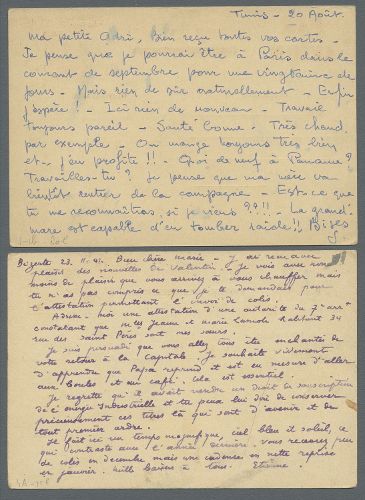 Tunis - 20 Août.
Ma petite Adri, bien reçu toutes vos cartes -
Je pense que je pourrai être à Paris dans le
courant de septembre pour une vingtaine de
jours - Mais rien de sûr naturellement - Enfin
j'espère! - Ici rien de nouveau - Travail
toujours pareil - Santé bonne - Très chaud,
par exemple - On mange toujours très bien
et j'en profite!! - Quoi de neuf à Paname?
Travailles-tu? Je pense que ma va
bientôt rentrer de la campagne - Est-ce que
tu me reconnaîtras, si je viens??!! - La grand'
mare est capable d'en tomber raide!! Bises
J.
Bizerte 23. 11. 41. Bien chère Marie - J'ai reçu avec
plaisir des nouvelles de Valentin. Je vois avec non
moins de plaisir que vous arrivez à vous chauffer mais
tu n'as pas compris ce que je te demandais pour
l'attestation permettant l'envoi de colis.
moi une attestation d'une autorité du 7e arrt
constatant que Jeanne et Marie 34
rue des Saint Pères sont mes sœurs.
Je suis persuadé que vous allez tous être enchantés de
votre retour à la Capitale. Je souhaite vivement
d'apprendre que Papa reprend et est en mesure d'aller
aux boules et au café, cela est essentiel.
Je regrette qu'il avait vendre un droit de souscription
de l'énergie Industrielle et tu peux lui dire de conserver
précieusement ces titres là qui sont d'avenir et de
tout premier ordre.
Il fait ici un temps magnifique, ciel bleu et soleil, ce
qui contraste avec l'année dernière. Vous recevrez peu
de colis en décembre mais une cadence en nette reprise
en janvier. Mille baisers à tous. Etienne.